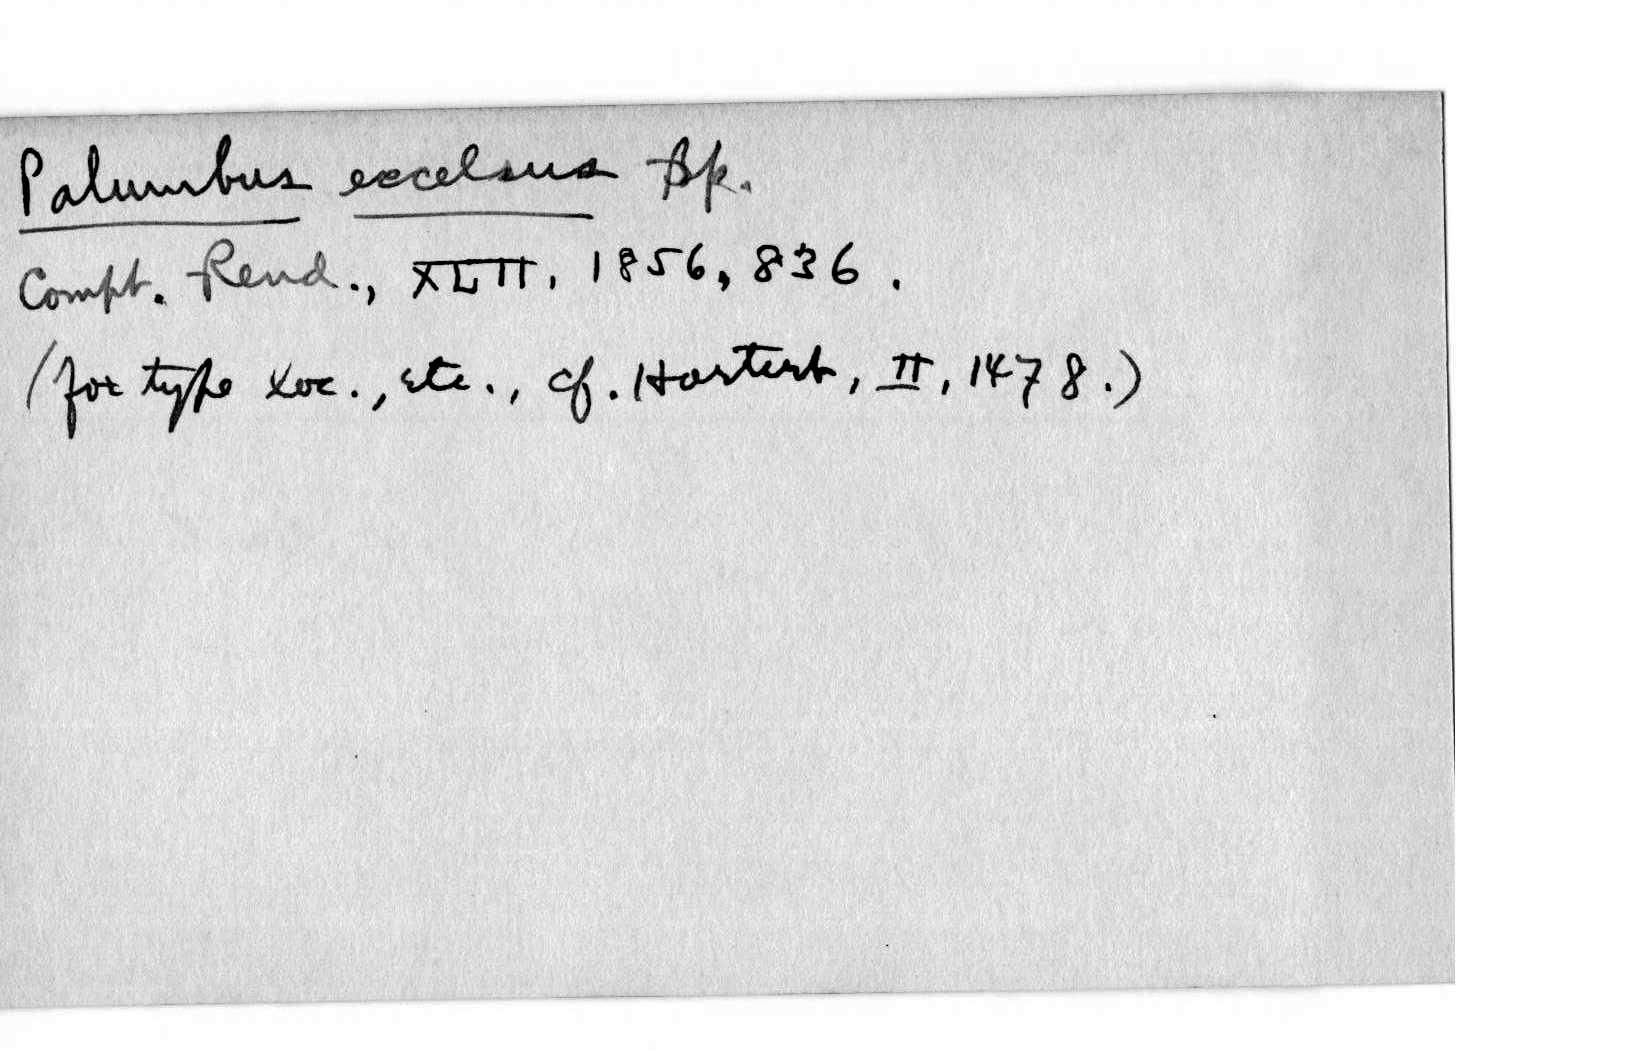 Palumbus excelsus Bp.
Compt. Rend., XLIII, 1856, 836.
(for type loc., etc., cf. Hartert, II, 1478.)